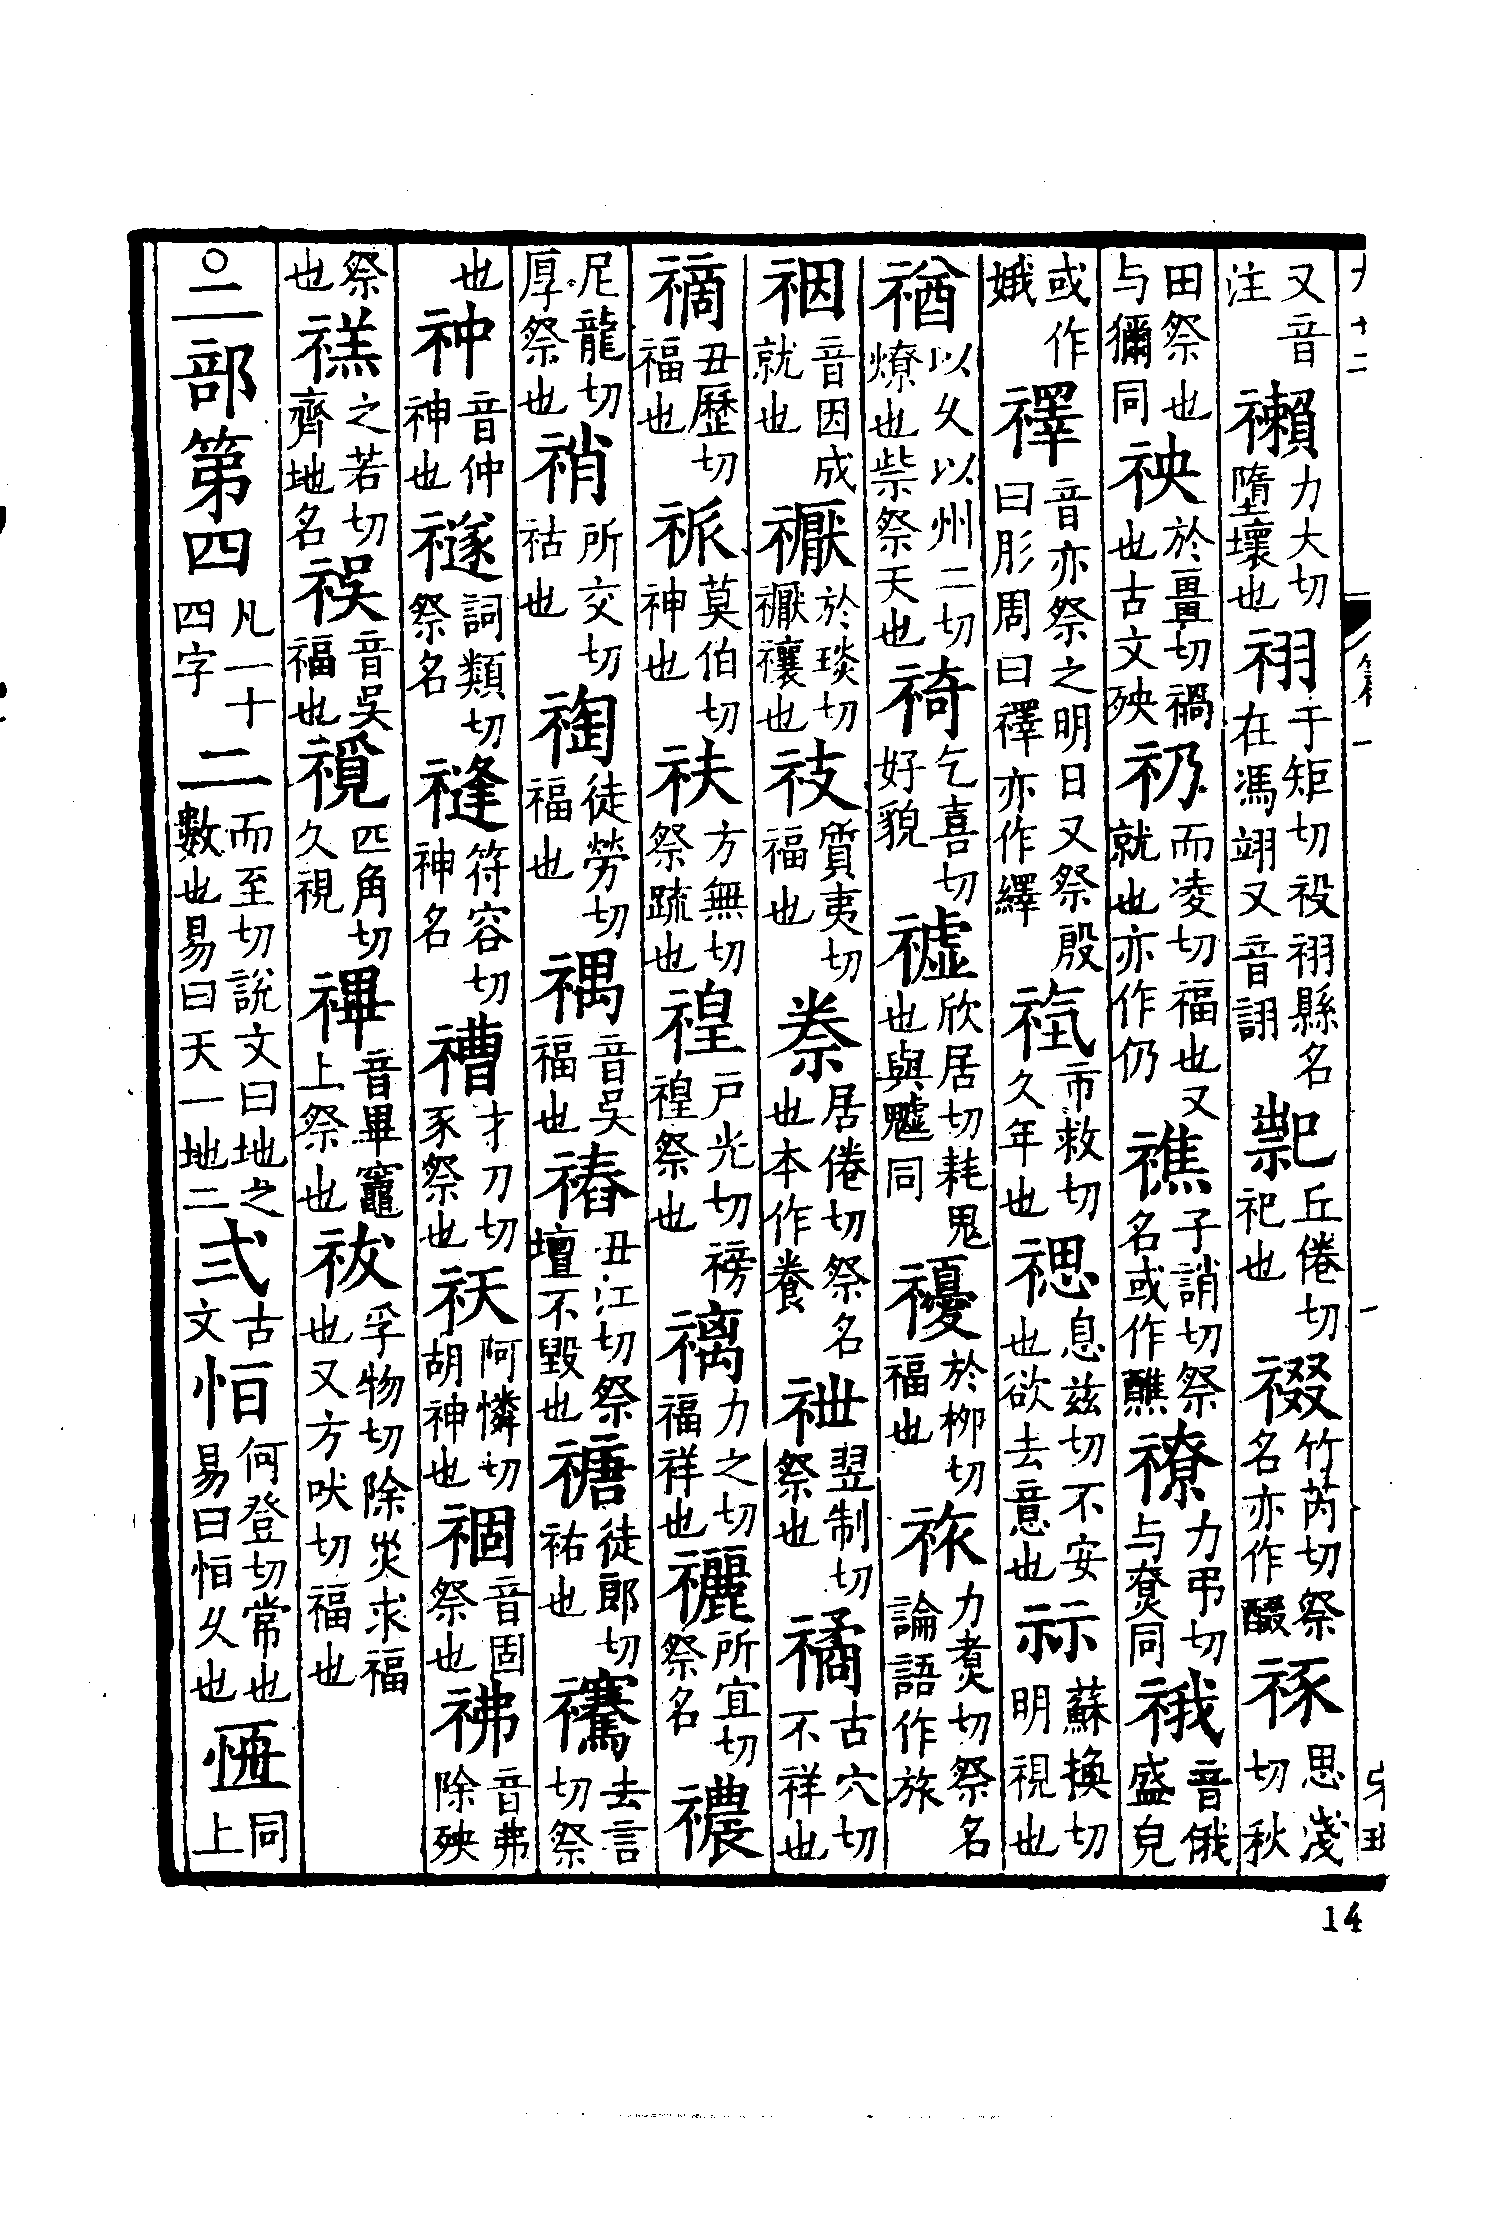 又音注䄤力大切墮壞也祤于矩切祋祤縣名在馮翊又音詡丘倦切祀也裰竹芮切祭名亦作醊㺇思淺切秋
田祭也与獮同䄃於畺切禍也古文殃礽而凌切福也又就也亦作仍䄈子誚切祭名或作醮尞力弔切与尞同䄉音俄盛皃
或作娥𥜃音亦祭之明日又祭殷曰肜周曰𥜃亦作繹市救切久年也禗息兹切不安也欲去意也祘蘇換切明視也
䄬以久以州二切燎也祡祭天也䄎乞喜切好貌𥜓欣居切耗鬼也與魖同於柳切福也祣力煑切祭名論語作旅
䄄音因成就也於琰切禳也𥘸質夷切福也𥙊居倦切祭名也本作𥙊䄁翌制切祭也䄯古穴切不祥也
䄞丑歷切福也莫伯切神也䄮方無切祭䟽也䄓戶光切祭也禼力之切福祥也䙰所宜切祭名禯
尼龍切厚祭也䄛所交切祜也䄻徒勞切福也禑音吳福也䄝丑江切祭壇不毀也禟徒郎切祐也去言切祭
也神音仲神也禭詞類切祭名䙜符容切神名𥛳才刀切豕祭也祆阿憐切胡神也䄍音固祭也𥙷音弗除殃
祭也禚之若切齊地名䄔音吳福也覭匹角切久視䄶音畢竈上祭也祓孚物切除災求福也又方吠切福也
○二部第四凡一十四字二而至切說文曰地之數也易曰天一地二弍古文恒何登切常也易曰恒久也𢛢同上
14